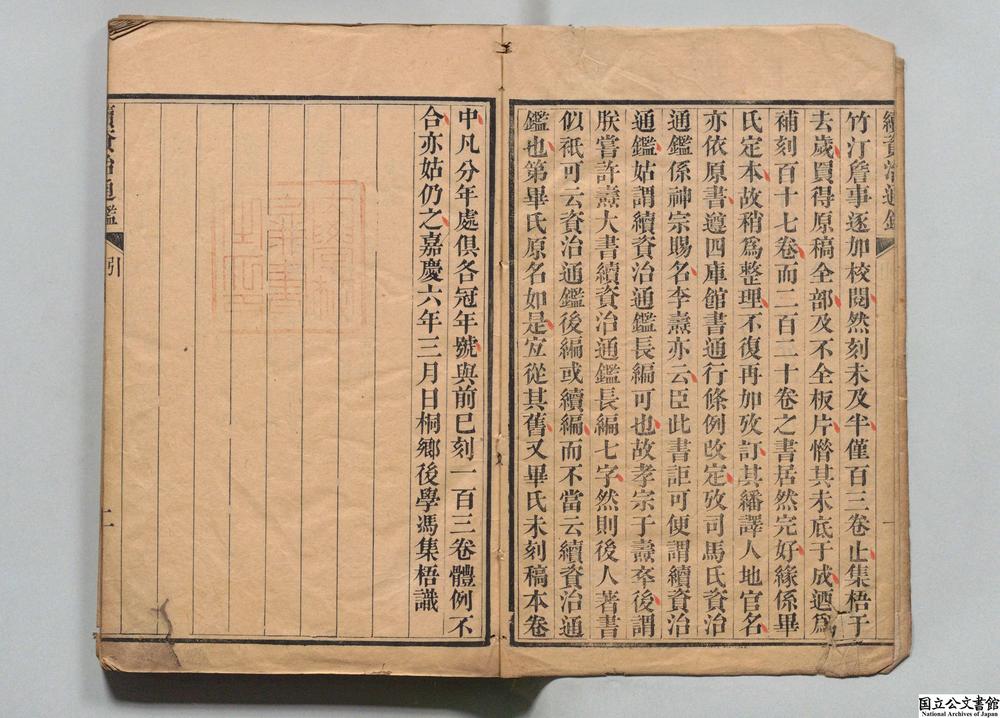 續資治通鑑
竹汀詹事逐加校閱然刻未及半僅百三卷止集梧于
去歲買得原稿全部及不全板片惜其未底于成迺爲
補刻百十七卷而二百二十卷之書居然完好緣係畢
氏定本故稍爲整理不復再加攷訂其繙譯人地官名
亦依原書遵四庫館書通行條例改定攷司馬氏資治
通鑑係神宗賜名李燾亦云臣此書詎可便謂續資治
通鑑姑謂續資治通鑑長編可也故孝宗于燾卒後謂
朕嘗許燾大書續資治通鑑長編七字然則後人著書
似祇可云資治通鑑後編或續編而不當云續資治通
鑑也第畢氏原名如是宐從其舊又畢氏未刻稿本卷
中凡分年處俱各冠年號與前已刻一百三卷體例不
合亦姑仍之嘉慶六年三月日桐鄉後學馮集梧識
續資治通鑑
引
国立公文書館
National Archives of Japan